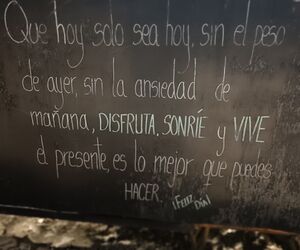 Que hoy solo sea hoy, sin el peso
de ayer, sin la ansiedad de
mañana, DISFRUTA, SONRÍE y VIVE
el presente, es lo mejor que puedes
HACER.
¡FELIZ DÍA!